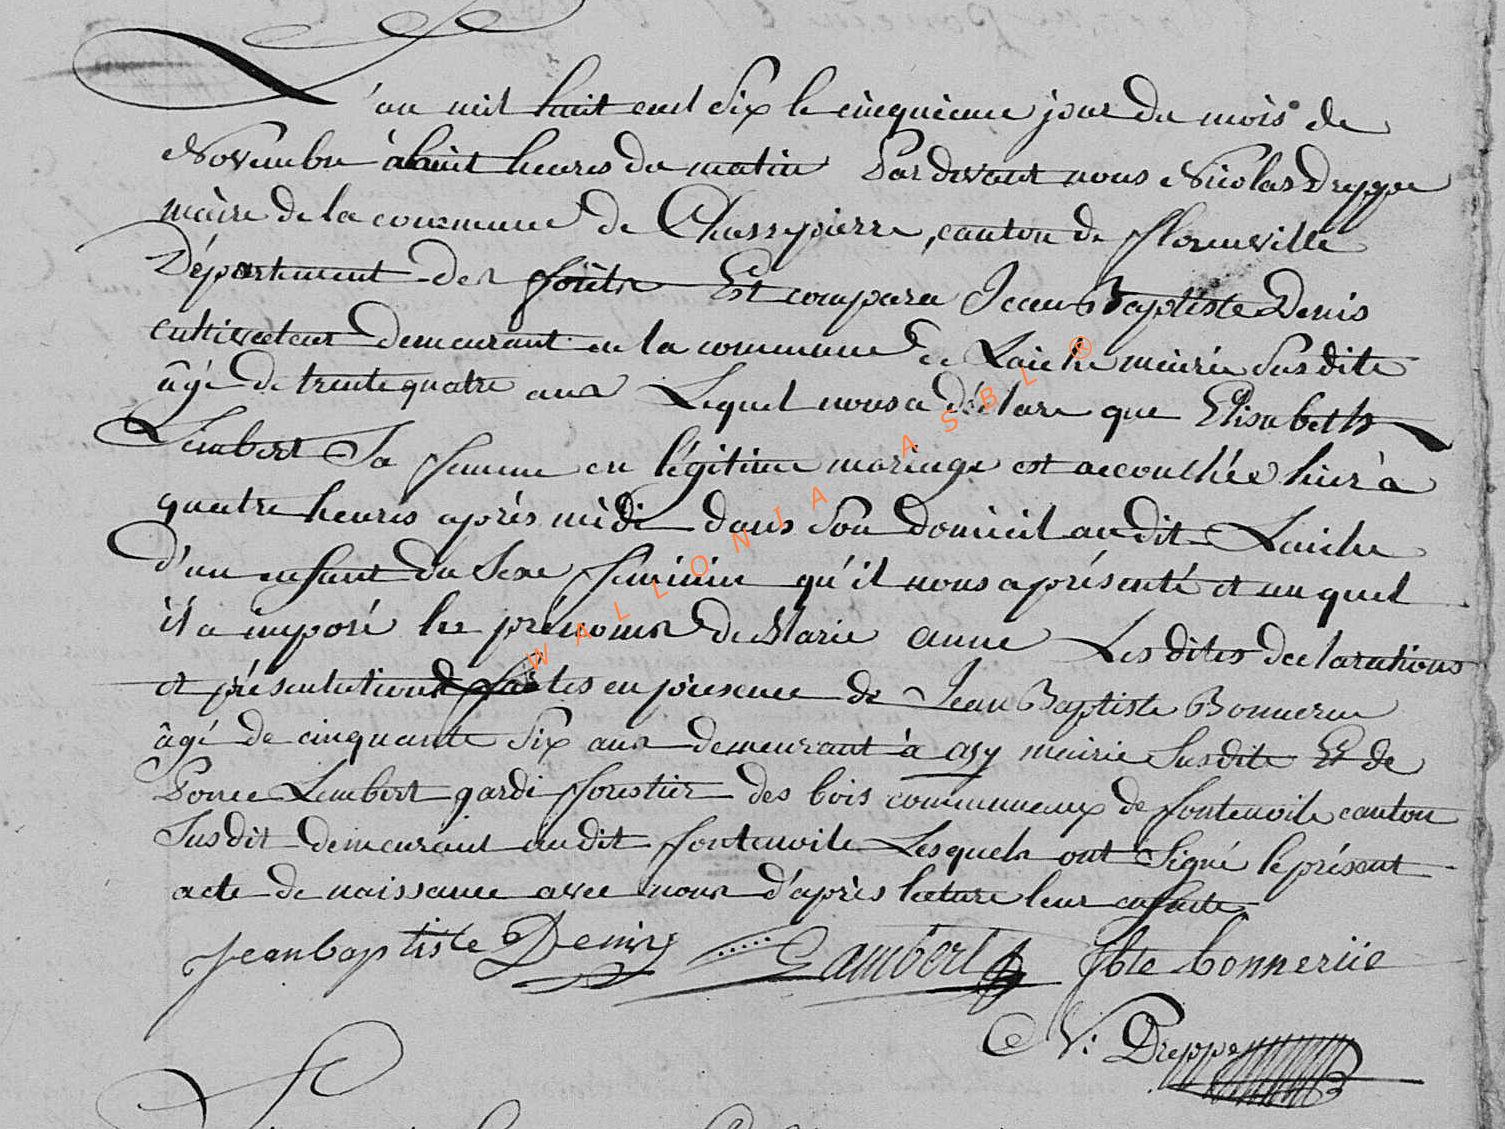 L'an mil huit cent Six le cinquieme jour du mois de
Novembre à huit heures du matin Pardevant nous Nicolas Dreppe
maire de la commune de Chassepierre, canton de florenville
Département des forêts Est comparu Jean Baptiste Denis
cultivateur demeurant en la commune de Laiche mairie Susdite
âgé de trente quatre ans Lequel nous a déclaré que Elisabeth
Lambert Sa femme en légitime mariage est accouchée hier à
quatre heures après midi dans Son domicil audit Laiche
d'un enfant du Sexe feminin qu'il nous a présenté et auquel
il a imposé les prénoms de Marie anne Les dites declarations
et présentations faites en presence de Jean Baptiste Bonnerue
âgé de cinquante Six ans demeurant à asy mairie Susdite Et de
Ponce Lambert garde forestier des bois communeaux de fontenoile canton
Susdit demeurant audit fontenoile Lesquels ont Signé le présent
acte de naissance avec nous d'après lecture leur enfaite
Jean baptiste Denis Lambert Jbte bonnerüe
N: Dreppe
WALLONIA ASBL ®